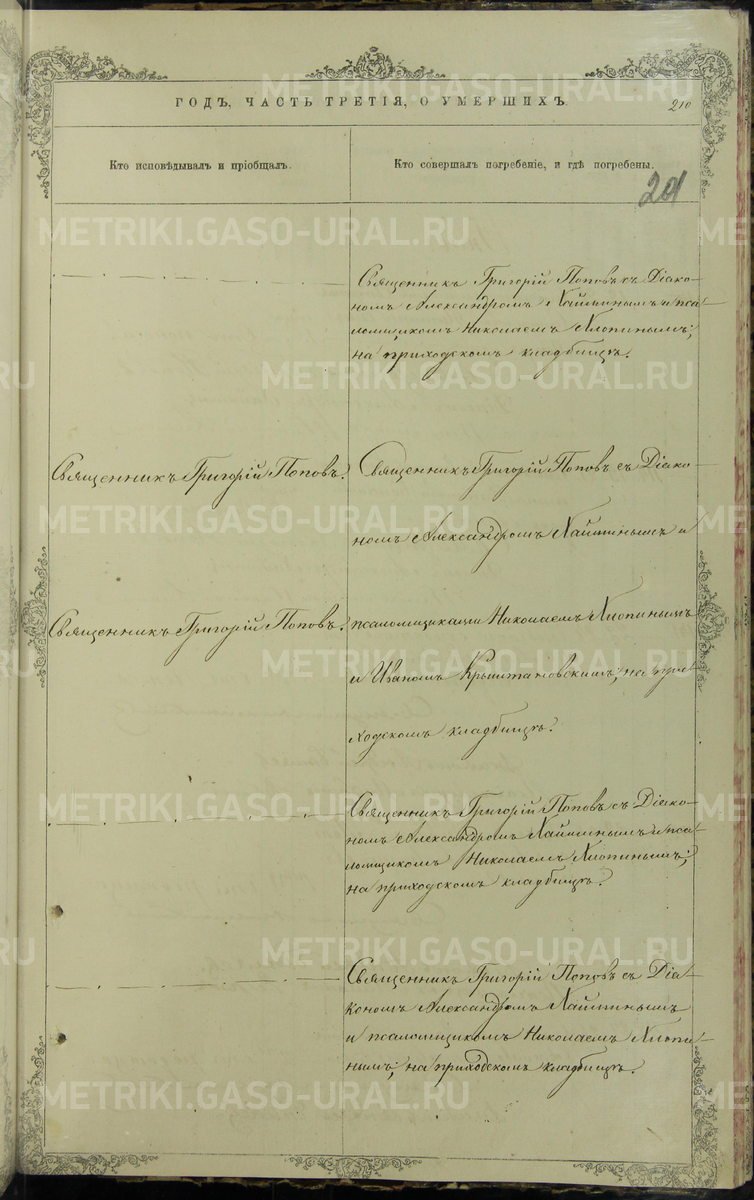 ГОДЪ, ЧАСТЬ ТРЕТІЯ, О УМЕРШИХЪ.
210
Кто исповѣдывалъ и пріобщалъ.
Кто совершалъ погребеніе, и гдѣ погребены.
201
Священникъ Григорій Поповъ съ Діако-
номъ Александромъ Хайминымъ и пса-
ломщикомъ Николаемъ Хлопинымъ;
на приходскомъ кладбищѣ.
Священникъ Григорій Поповъ.
Священникъ Григорій Поповъ съ Діако-
номъ Александромъ Хайминымъ и
Священникъ Григорій Поповъ.
псаломщиками Николаемъ Хлопинымъ
и Иваномъ Крыштановскимъ; на при-
ходскомъ кладбищѣ.
Священникъ Григорій Поповъ съ Діако-
номъ Александромъ Хайминымъ и пса-
ломщикомъ Николаемъ Хлопинымъ;
на приходскомъ кладбищѣ.
Священникъ Григорій Поповъ съ Діа-
кономъ Александромъ Хайминымъ
и псаломщикомъ Николаемъ Хлопи-
нымъ; на приходскомъ кладбищѣ.
METRIKI.GASO-URAL.RU